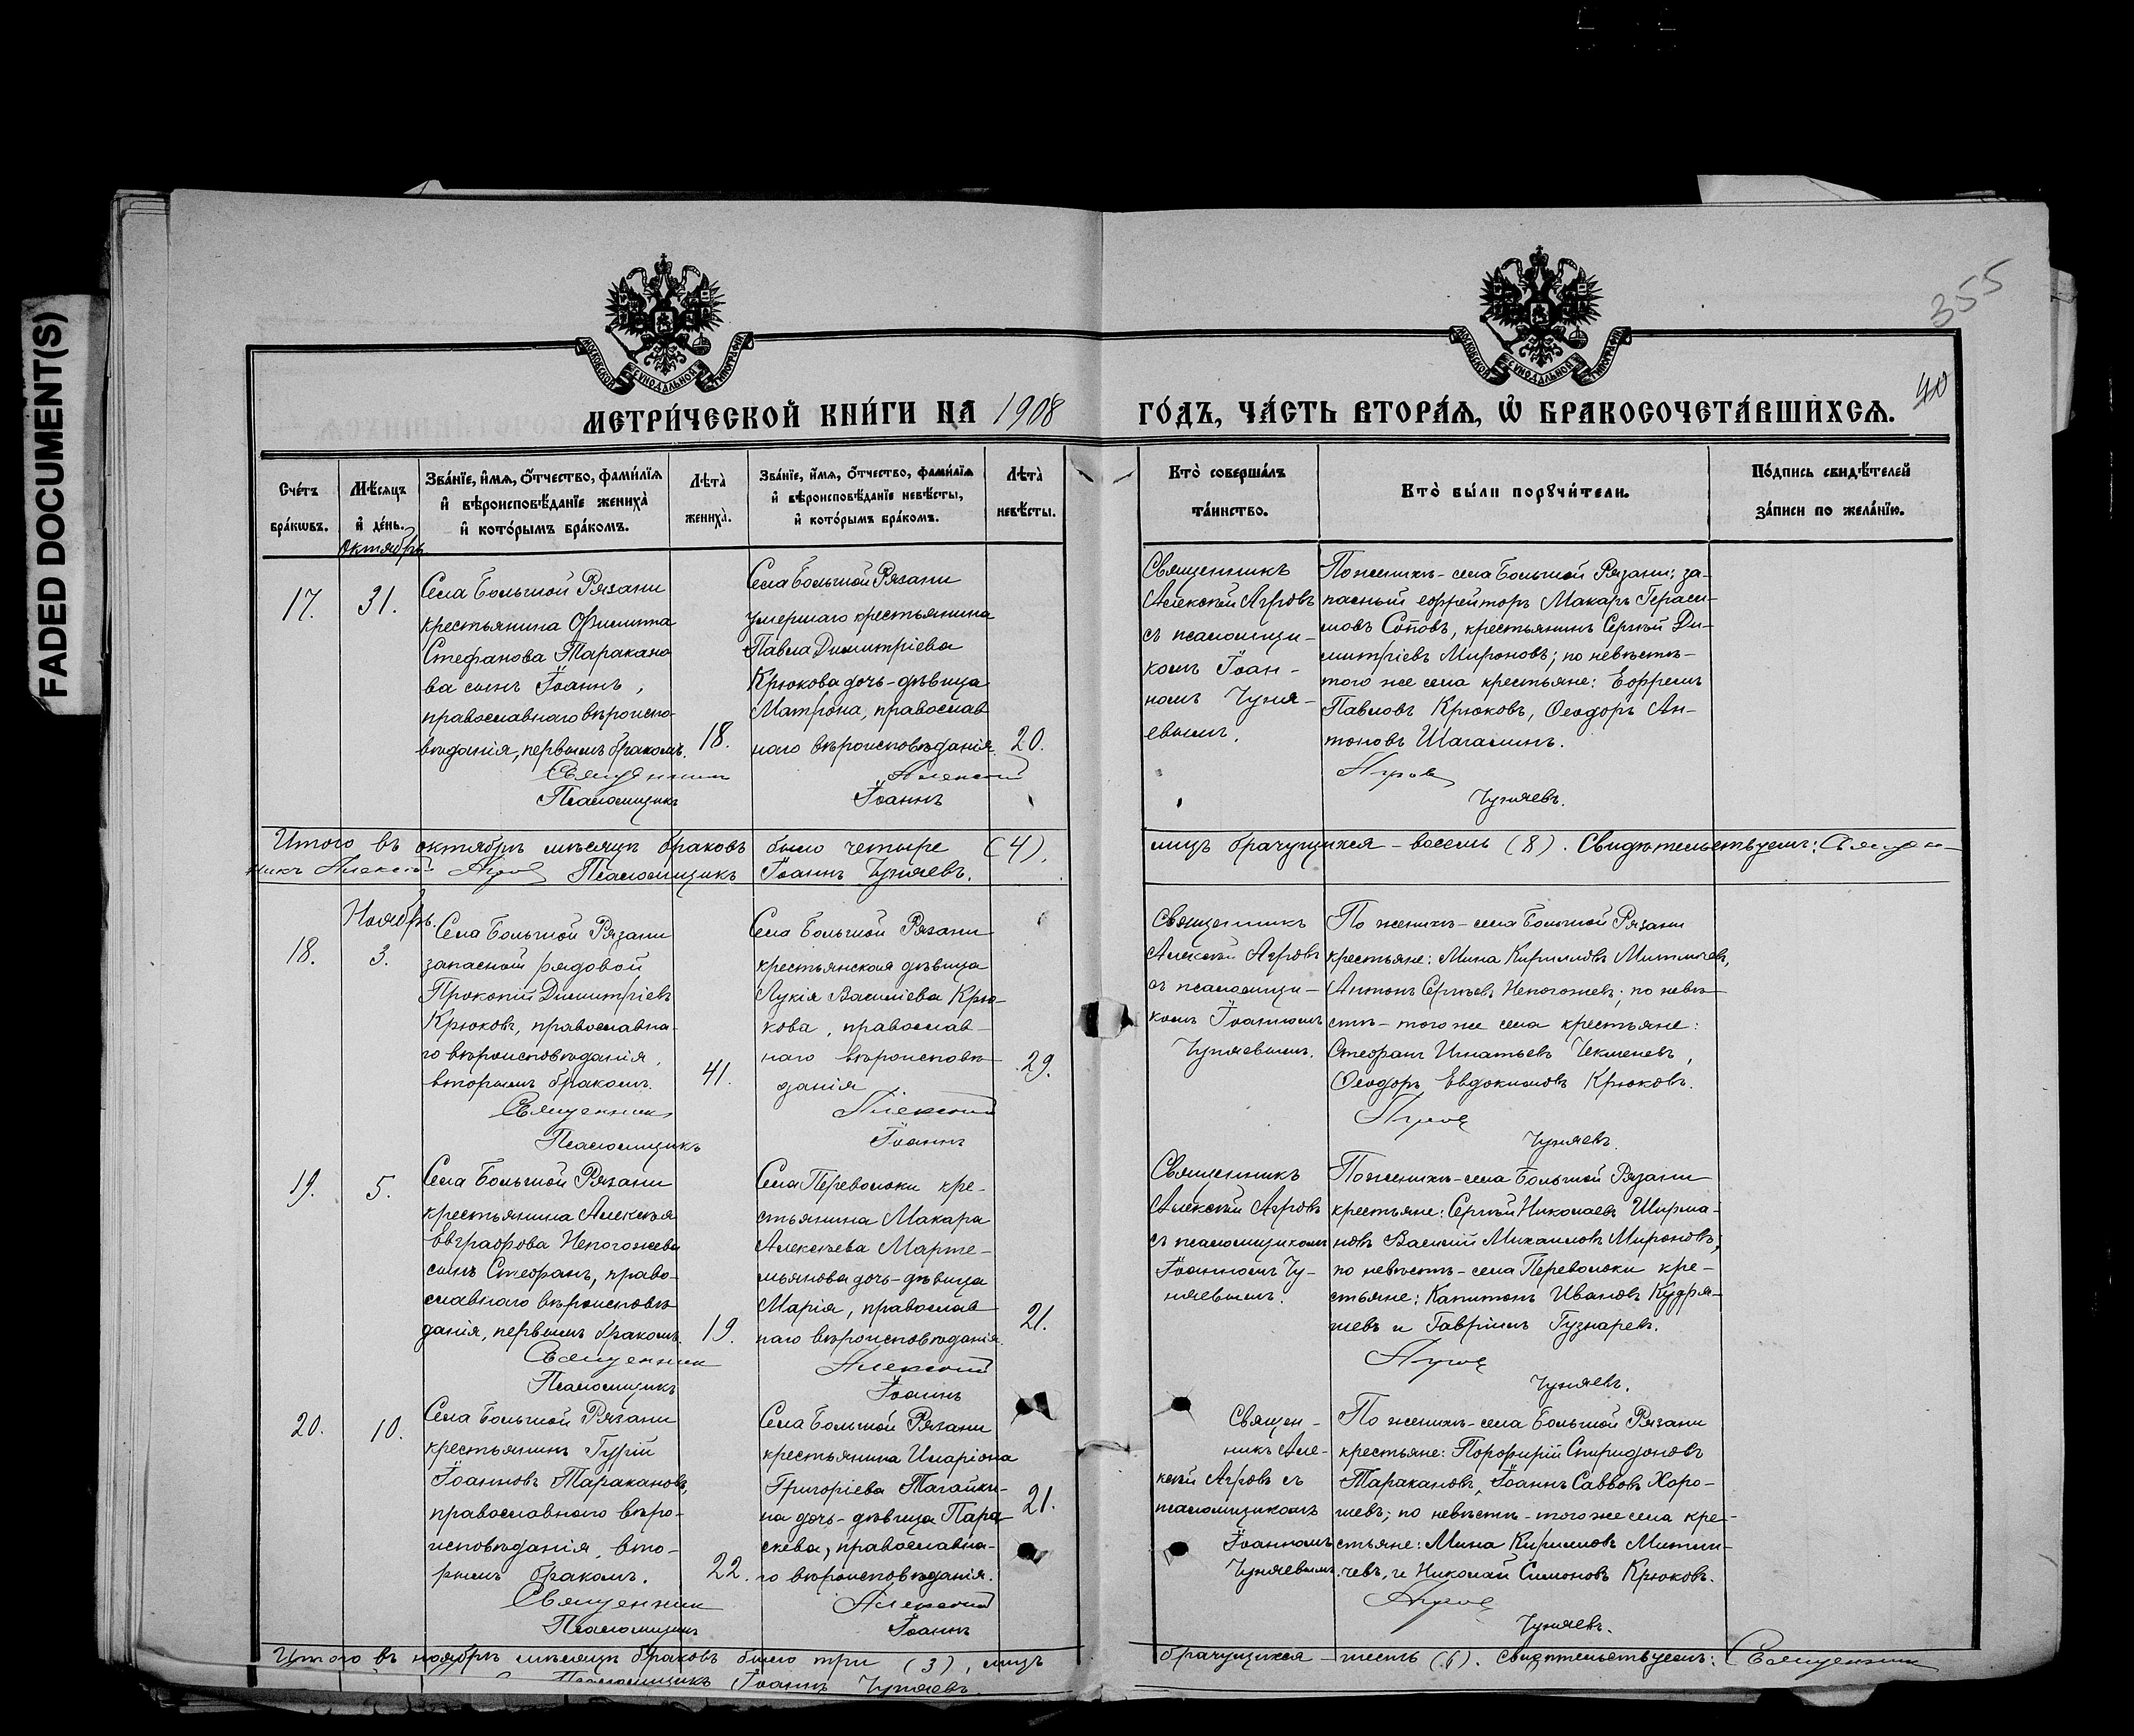 FADED DOCUMENT(S)
355
40
МОСКОВСКОЙ СѴНОДАЛЬНОЙ ТИПОГРАФІИ
МОСКОВСКОЙ СѴНОДАЛЬНОЙ ТИПОГРАФІИ
МЕТРИ́ЧЕСКОЙ КНИ́ГИ НА 1908 ГО́ДЪ, ЧА́СТЬ ВТОРА́Ѧ, Ѡ҆ БРАКОСОЧЕТА́ВШИХСѦ.
Сче́тъ
бра́кѡвъ.
Мѣ́сяцъ
и҆ де́нь.
Зва́нїе, и҆́мѧ, о҆́тчество, фами́лїѧ
и҆ вѣроисповѣ́данїе жениха̀
и҆ кото́рымъ бра́комъ.
Лѣта̀
жениха̀.
Зва́нїе, и҆́мѧ, о҆́тчество, фами́лїѧ
и҆ вѣроисповѣ́данїе невѣ́сты,
и҆ кото́рымъ бра́комъ.
Лѣта̀
невѣ́сты.
Кто̀ соверша́лъ
та́инство.
Кто̀ бы́ли порꙋчи́тели.
По́дпись свидѣ́телей
за́писи по жела́нїю.
Октябрь
17.
31.
Села Большой Рязани
крестьянина Филиппа
Стефанова Таракано
ва сынъ Іоаннъ,
православнаго вѣроиспо-
вѣданія, первымъ бракомъ.
18.
Села Большой Рязани
умершаго крестьянина
Павла Димитріева
Крюкова дочь-дѣвица
Матрона, православ
наго вѣроисповѣданія.
20.
Священникъ
Алексѣй Агровъ
съ псаломщи-
комъ Іоан-
номъ Чуня-
евымъ.
По женихѣ - села Большой Рязани: за-
пасный ефрейторъ Макаръ Гераси-
мовъ Соповъ, крестьянинъ Сергѣй Ди-
митріевъ Мироновъ; по невѣстѣ -
того же села крестьяне: Ефремъ
Павловъ Крюковъ, Ѳеодоръ Ан-
тоновъ Шагалинъ.
Священникъ Алексѣй Агровъ
Псаломщикъ Іоаннъ Чуняевъ.
Итого въ октябрѣ мѣсяцѣ браковъ было четыре (4),
лицъ брачущихся - восемь (8). Свидѣтельствуемъ: Священ-
никъ Алексѣй Агровъ Псаломщикъ Іоаннъ Чуняевъ.
Ноябрь.
18.
3.
Села Большой Рязани
запасной рядовой
Прокопій Димитріевъ
Крюковъ, православна-
го вѣроисповѣданія,
вторымъ бракомъ.
41.
Села Большой Рязани
крестьянская дѣвица
Лукія Василіева Крю-
кова, православ-
наго вѣроисповѣ
данія
29.
Священникъ
Алексѣй Агровъ
съ псаломщи-
комъ Іоанномъ
Чуняевымъ.
По женихѣ - села Большой Рязани
крестьяне: Мина Кирилловъ Митличевъ,
Антонъ Сергѣевъ Непогожевъ; по невѣ-
стѣ - того же села крестьяне:
Стефанъ Игнатьевъ Чекменевъ,
Ѳеодоръ Евдокимовъ Крюковъ.
Священникъ Алексѣй Агровъ
Псаломщикъ Іоаннъ Чуняевъ.
19.
5.
Села Большой Рязани
крестьянина Алексѣя
Евграфова Непогожева
сынъ Стефанъ, право-
славнаго вѣроисповѣ
данія, первымъ бракомъ.
19.
Села Переволоки кре-
стьянина Макара
Алексѣева Марте-
мьянова дочь-дѣвица
Марія, православ
наго вѣроисповѣданія.
21.
Священникъ
Алексѣй Агровъ
съ псаломщикомъ
Іоанномъ Чу-
няевымъ.
По женихѣ - села Большой Рязани
крестьяне: Сергѣй Николаевъ Ширма-
новъ Василій Михаиловъ Мироновъ;
по невѣстѣ - села Переволоки кре-
стьяне: Капитонъ Ивановъ Кудря-
шевъ и Гавріилъ Гузнаревъ.
Священникъ Алексѣй Агровъ
Псаломщикъ Іоаннъ Чуняевъ.
20.
10.
Села Большой Рязани
крестьянинъ Гурій
Іоанновъ Таракановъ,
православнаго вѣро-
исповѣданія, вто-
рымъ бракомъ.
22.
Села Большой Рязани
крестьянина Иларіона
Григоріева Тагайки-
на дочь-дѣвица Пара
скева, православна-
го вѣроисповѣданія.
21.
Священ-
никъ Але-
ксѣй Агровъ съ
псаломщикомъ
Іоанномъ
Чуняевымъ.
По женихѣ - села Большой Рязани
крестьяне: Порфирій Спиридоновъ
Таракановъ, Іоаннъ Саввовъ Хоро-
шевъ; по невѣстѣ - того же села кре-
стьяне: Мина Кирилловъ Митли-
чевъ, и Николай Симоновъ Крюковъ.
Священникъ Алексѣй Агровъ
Псаломщикъ Іоаннъ Чуняевъ.
Итого въ ноябрѣ мѣсяцѣ браковъ было три (3), лицъ
брачущихся - шесть (6). Свидѣтельствуемъ: Священникъ
Псаломщикъ Іоаннъ Чуняевъ.